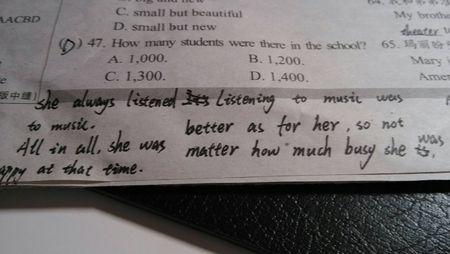 AACBD
C. small but beautiful
D. small but new
(D) 47. How many students were there in the school?
A. 1,000. B. 1,200.
C. 1,300. D. 1,400.
My brothe
theater
65.
Mary i
Amer
she always listened Listening to music was
to music. better as for her, so not
All in all, she was matter how much busy she was,
appy at that time.